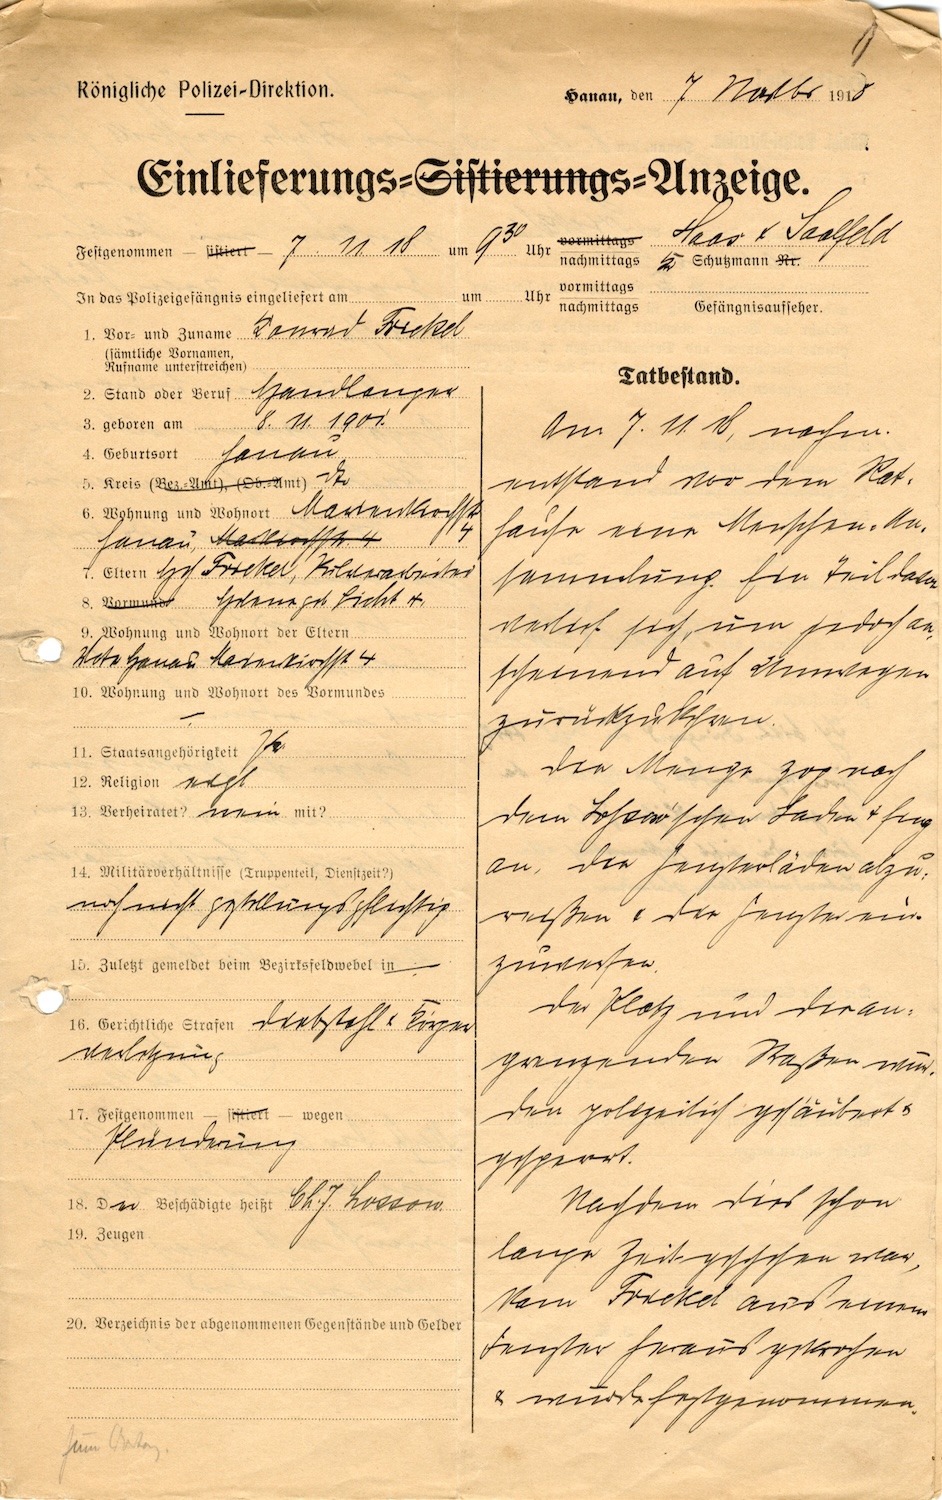 Königliche Polizei-Direktion.
Hanau, den 7 Novbr 1918
Einlieferungs-Sistierungs-Anzeige.
Festgenommen — sistiert — 7. 11 18 um 9³⁰ Uhr vormittags nachmittags
Haas & Saalfeld
Schutzmann Nr.
In das Polizeigefängnis eingeliefert am um Uhr vormittags nachmittags
Gefängnisaufseher.
1. Vor- und Zuname Konrad Frickel
(sämtliche Vornamen,
Rufname unterstreichen)
2. Stand oder Beruf Handlanger
3. geboren am 8. 11. 1901.
4. Geburtsort Hanau
5. Kreis (Bez.-Amt), (Ob.-Amt) dto
6. Wohnung und Wohnort Marienkirchstr 4
Hanau,
7. Eltern Frickel,
8. Vormund
9. Wohnung und Wohnort der Eltern
Hanau Marienkirchstr 4
10. Wohnung und Wohnort des Vormundes
—
11. Staatsangehörigkeit Pr.
12. Religion evgl
13. Verheiratet? nein mit?
14. Militärverhältnisse (Truppenteil, Dienstzeit?)
noch nicht gestellungspflichtig
15. Zuletzt gemeldet beim Bezirksfeldwebel in —
16. Gerichtliche Strafen Diebstahl & Körper
verletzung
17. Festgenommen — sistiert — wegen
Plünderung
18. Der Beschädigte heißt Ch. J. Lossow
19. Zeugen
20. Verzeichnis der abgenommenen Gegenstände und Gelder
Tatbestand.
Am 7. 11 18, nachm.
entstand vor dem Rat-
hause eine Menschen-An-
sammlung. Ein Teil davon
verlief sich, um jedoch an-
scheinend auf Umwegen
zurückzukehren.
Die Menge zog nach
dem Lossow'schen Laden & fing
an, die Fensterläden abzu-
reißen & die Fenster ein-
zuwerfen.
Der Platz und die an-
grenzenden Straßen wur-
den polizeilich gesäubert &
gesperrt.
Nachdem dies schon
lange Zeit geschehen war,
kam Frickel aus einem
Fenster heraus gekrochen
& wurde festgenommen.